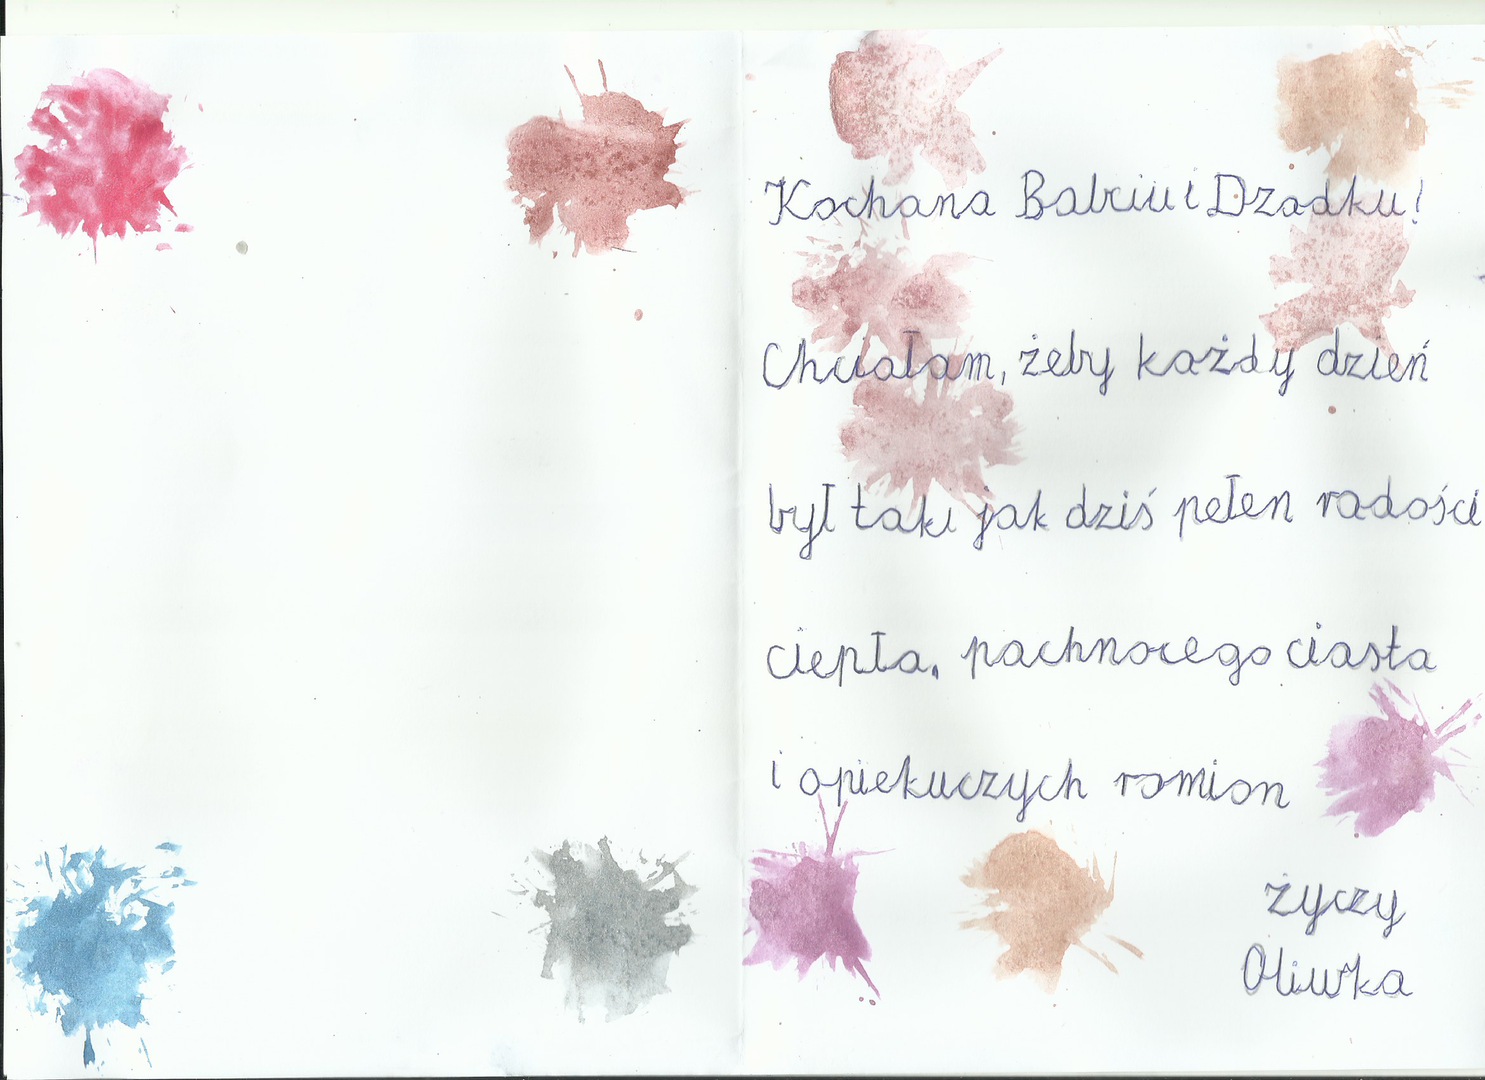 Kochana Babciu i Dzadku!
Chciałam, żeby każdy dzień
był taki jak dziś pełen radości
ciepła, pachnocego ciasta
i opiekuczych ramion
życzy
Oliwka